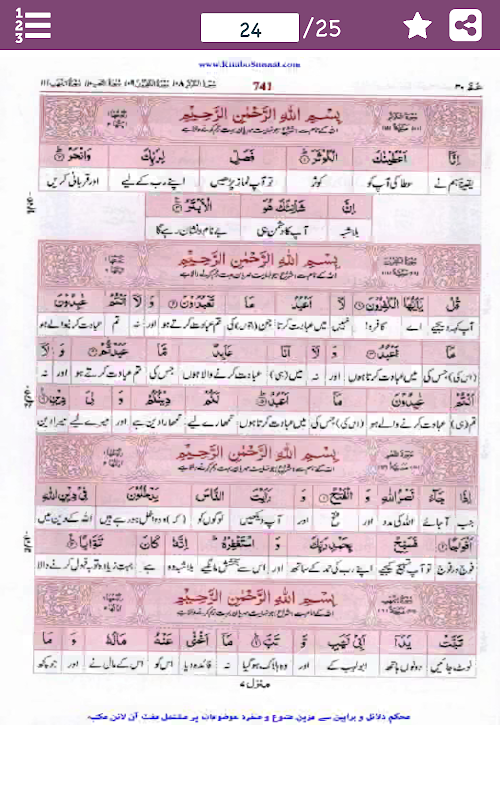 1 2 3
24 /25
www.KitaboSunnat.com
741
بِسْمِ اللهِ الرَّحْمٰنِ الرَّحِيْمِ
اِنَّآ اَعْطَيْنٰكَ الْكَوْثَرَ فَصَلِّ لِرَبِّكَ وَانْحَرْ
یقیناً ہم نے عطا کی آپ کو کوثر تو آپ نماز پڑھیں اپنے رب کے لیے اور قربانی کریں
اِنَّ شَانِئَكَ هُوَ الْاَبْتَرُ
بلاشبہ آپ کا دشمن ہی بے نام و نشان رہے گا
بِسْمِ اللهِ الرَّحْمٰنِ الرَّحِيْمِ
قُلْ يٰٓاَيُّهَا الْكٰفِرُوْنَ لَآ اَعْبُدُ مَا تَعْبُدُوْنَ وَ لَآ اَنْتُمْ عٰبِدُوْنَ
آپ کہہ دیجیے اے کافرو! نہیں میں عبادت کرتا جن (بتوں) کی تم عبادت کرتے ہو اور نہ تم عبادت کرنے والے ہو
مَآ اَعْبُدُ وَ لَآ اَنَا عَابِدٌ مَّا عَبَدْتُّمْ وَ لَآ
(اس کی) جس کی میں عبادت کرتا ہوں اور نہ میں (ہی) عبادت کرنے والا ہوں جس کی تم عبادت کرتے ہو اور نہ
اَنْتُمْ عٰبِدُوْنَ مَآ اَعْبُدُ لَكُمْ دِيْنُكُمْ وَ لِيَ دِيْنِ
تم (ہی) عبادت کرنے والے ہو (اس کی) جس کی میں عبادت کرتا ہوں تمھارے لیے تمھارا دین ہے اور میرے لیے میرا دین
بِسْمِ اللهِ الرَّحْمٰنِ الرَّحِيْمِ
اِذَا جَآءَ نَصْرُ اللهِ وَ الْفَتْحُ وَ رَاَيْتَ النَّاسَ يَدْخُلُوْنَ فِيْ دِيْنِ اللهِ
جب آ جائے اللہ کی مدد اور فتح اور آپ دیکھیں لوگوں کو (کہ) وہ داخل ہو رہے ہیں اللہ کے دین میں
اَفْوَاجًا فَسَبِّحْ بِحَمْدِ رَبِّكَ وَ اسْتَغْفِرْهُ اِنَّهٗ كَانَ تَوَّابًا
فوج در فوج تو آپ تسبیح کیجیے اپنے رب کی حمد کے ساتھ اور اس سے بخشش مانگیے بلاشبہ وہ ہے بہت زیادہ توبہ قبول کرنے والا
بِسْمِ اللهِ الرَّحْمٰنِ الرَّحِيْمِ
تَبَّتْ يَدَآ اَبِيْ لَهَبٍ وَّ تَبَّ مَآ اَغْنٰى عَنْهُ مَالُهٗ وَ مَا
ٹوٹ جائیں دونوں ہاتھ ابو لہب کے اور وہ ہلاک ہو گیا نہ فائدہ دیا اس کو اس کے مال نے اور جو کچھ
منزل ۷
محکم دلائل و براہین سے مزین متنوع و منفرد موضوعات پر مشتمل مفت آن لائن مکتبہ